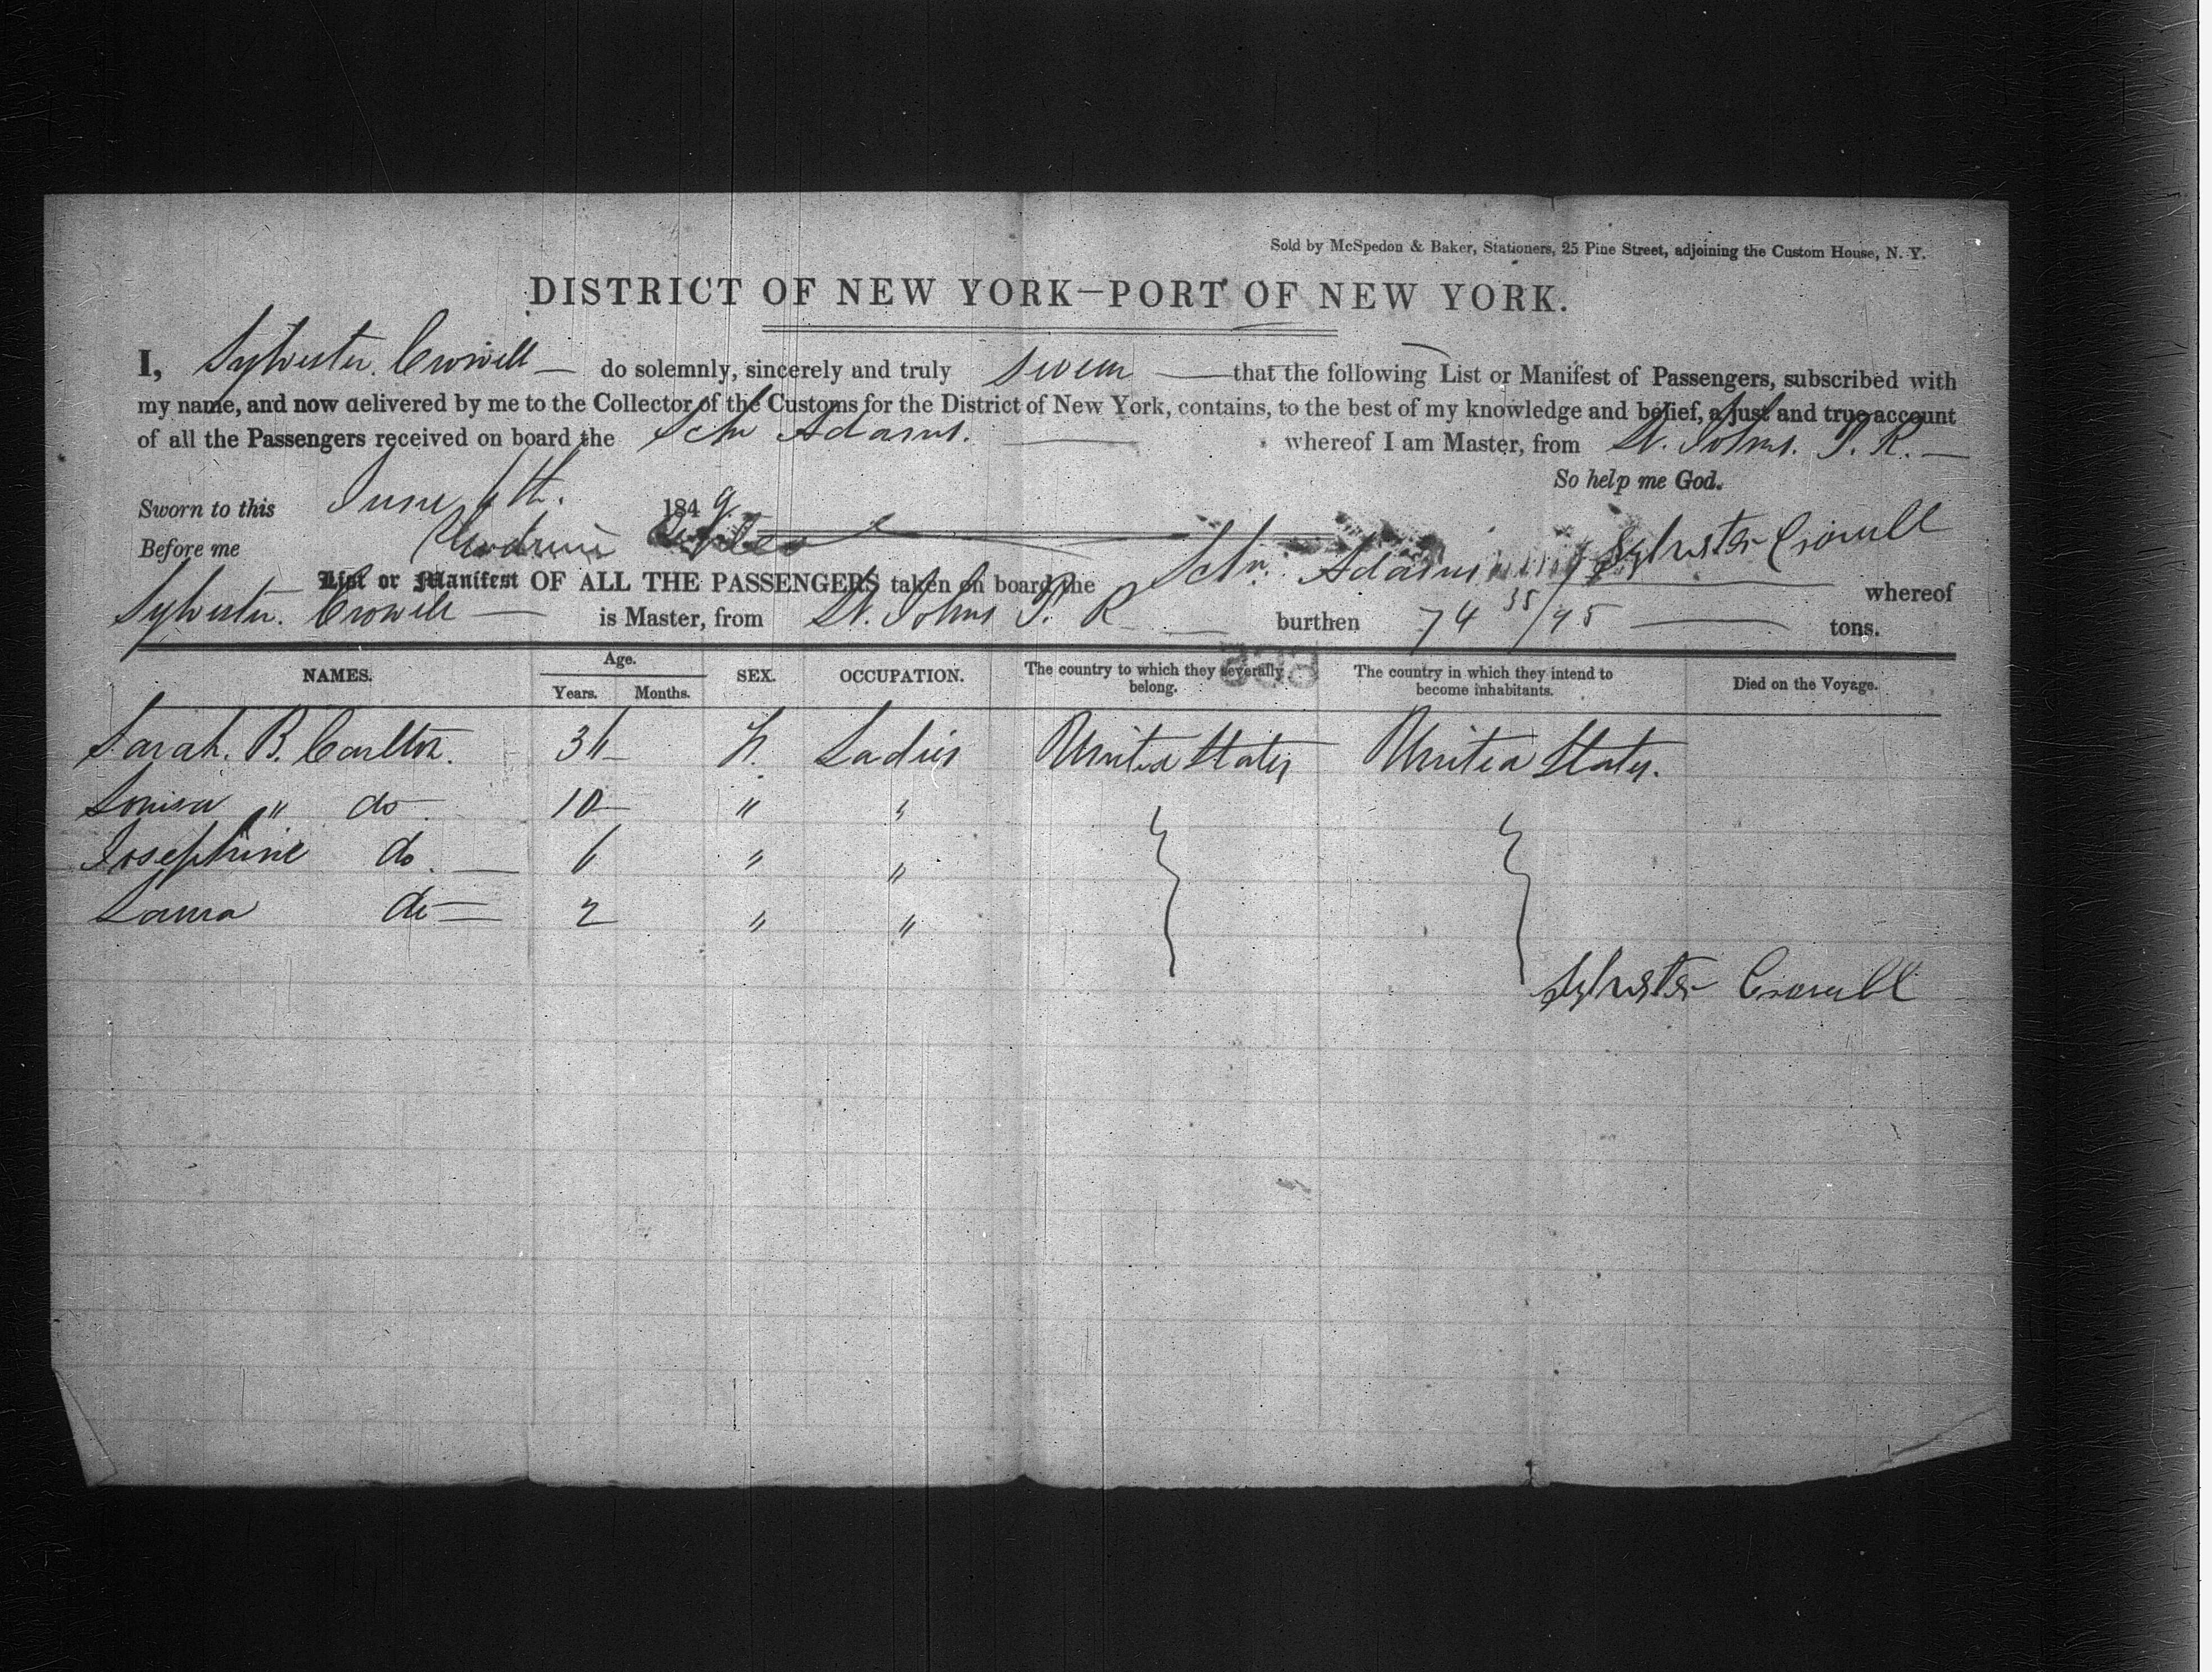 Sold by McSpedon & Baker, Stationers, 25 Pine Street, adjoining the Custom House, N. Y.
DISTRICT OF NEW YORK—PORT OF NEW YORK.
I, Sylvester Crowell — do solemnly, sincerely and truly swear — that the following List or Manifest of Passengers, subscribed with
my name, and now delivered by me to the Collector of the Customs for the District of New York, contains, to the best of my knowledge and belief, a just and true account
of all the Passengers received on board the Schr Adams. — whereof I am Master, from St. Johns. P. R. —
So help me God.
Sworn to this June 6th. 1849
Before me Sylvester Crowell
List or Manifest OF ALL THE PASSENGERS taken on board the Schr. Adams — whereof
Sylvester Crowell — is Master, from St. Johns P. R — burthen 74 35/95 — tons.
NAMES. Age. Years. Months. SEX. OCCUPATION. The country to which they severally belong. The country in which they intend to become inhabitants. Died on the Voyage.
Sarah. B. Carlton. 36 F. Ladies United States United States.
Louisa " do 10 " "
Josephine do. — 6 " "
Laura do — 2 " "
Sylvester Crowell